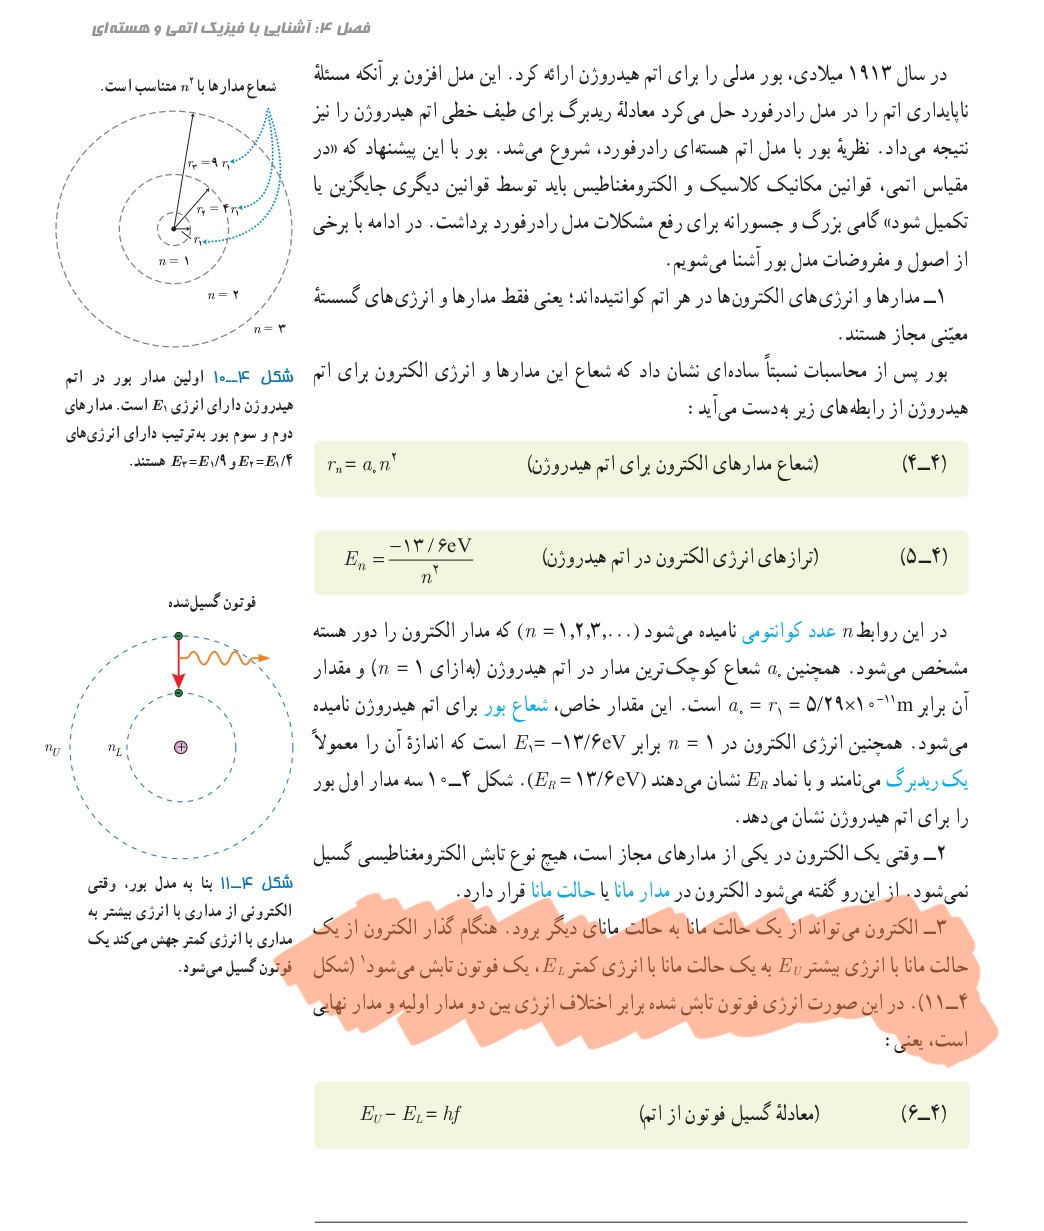 فصل ۴: آشنایی با فیزیک اتمی و هسته‌ای
در سال ۱۹۱۳ میلادی، بور مدلی را برای اتم هیدروژن ارائه کرد. این مدل افزون بر آنکه مسئلهٔ
ناپایداری اتم را در مدل رادرفورد حل می‌کرد معادلهٔ ریدبرگ برای طیف خطی اتم هیدروژن را نیز
نتیجه می‌داد. نظریهٔ بور با مدل اتم هسته‌ای رادرفورد، شروع می‌شد. بور با این پیشنهاد که «در
مقیاس اتمی، قوانین مکانیک کلاسیک و الکترومغناطیس باید توسط قوانین دیگری جایگزین یا
تکمیل شود» گامی بزرگ و جسورانه برای رفع مشکلات مدل رادرفورد برداشت. در ادامه با برخی
از اصول و مفروضات مدل بور آشنا می‌شویم.
۱ــ مدارها و انرژی‌های الکترون‌ها در هر اتم کوانتیده‌اند؛ یعنی فقط مدارها و انرژی‌های گسستهٔ
معیّنی مجاز هستند.
بور پس از محاسبات نسبتاً ساده‌ای نشان داد که شعاع این مدارها و انرژی الکترون برای اتم
هیدروژن از رابطه‌های زیر به‌دست می‌آید :
(۴ــ۴) (شعاع مدارهای الکترون برای اتم هیدروژن) rₙ = a₀ n²
(۴ــ۵) (ترازهای انرژی الکترون در اتم هیدروژن) Eₙ = −۱۳/۶eV / n²
در این روابط n عدد کوانتومی نامیده می‌شود (n = ۱,۲,۳,...) که مدار الکترون را دور هسته
مشخص می‌شود. همچنین a₀ شعاع کوچک‌ترین مدار در اتم هیدروژن (به‌ازای n = ۱) و مقدار
آن برابر a₀ = r₁ = ۵/۲۹×۱۰⁻¹¹m است. این مقدار خاص، شعاع بور برای اتم هیدروژن نامیده
می‌شود. همچنین انرژی الکترون در n = ۱ برابر E₁= −۱۳/۶eV است که اندازهٔ آن را معمولاً
یک ریدبرگ می‌نامند و با نماد E_R نشان می‌دهند (E_R = ۱۳/۶eV). شکل ۴ــ۱۰ سه مدار اول بور
را برای اتم هیدروژن نشان می‌دهد.
۲ــ وقتی یک الکترون در یکی از مدارهای مجاز است، هیچ نوع تابش الکترومغناطیسی گسیل
نمی‌شود. از این‌رو گفته می‌شود الکترون در مدار مانا یا حالت مانا قرار دارد.
۳ــ الکترون می‌تواند از یک حالت مانا به حالت مانای دیگر برود. هنگام گذار الکترون از یک
حالت مانا با انرژی بیشتر E_U به یک حالت مانا با انرژی کمتر E_L، یک فوتون تابش می‌شود¹ (شکل
۴ــ۱۱). در این صورت انرژی فوتون تابش شده برابر اختلاف انرژی بین دو مدار اولیه و مدار نهایی
است، یعنی :
(۴ــ۶) (معادلهٔ گسیل فوتون از اتم) E_U − E_L = hf
شعاع مدارها با n² متناسب است.
r₃ = ۹ r₁
r₂ = ۴ r₁
r₁
n = ۱
n = ۲
n = ۳
شکل ۴ــ۱۰ اولین مدار بور در اتم
هیدروژن دارای انرژی E₁ است. مدارهای
دوم و سوم بور به‌ترتیب دارای انرژی‌های
E₂=E₁/۴ و E₃=E₁/۹ هستند.
فوتون گسیل‌شده
n_U
n_L
+
شکل ۴ــ۱۱ بنا به مدل بور، وقتی
الکترونی از مداری با انرژی بیشتر به
مداری با انرژی کمتر جهش می‌کند یک
فوتون گسیل می‌شود.